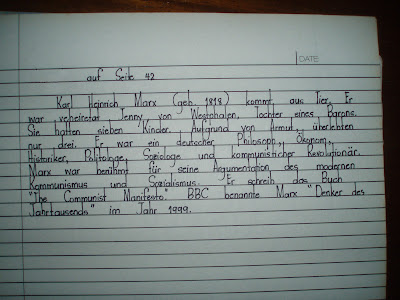 DATE
auf Seite 42
Karl Heinrich Marx (geb. 1818) kommt aus Trier. Er
war verheiratet Jenny von Westphalen, Tochter eines Barons.
Sie hatten sieben Kinder. Aufgrund von Armut überlebten
nur drei. Er war ein deutscher Philosoph, Ökonom,
Historiker, Politologe, Soziologe und kommunisticher Revolutionär.
Marx war berühmt für seine Argumentation des modernen
Kommunismus und Sozialismus. Er schreib das Buch
"The Communist Manifesto." BBC benannte Marx "Denker des
Jahrtausends" im Jahr 1999.